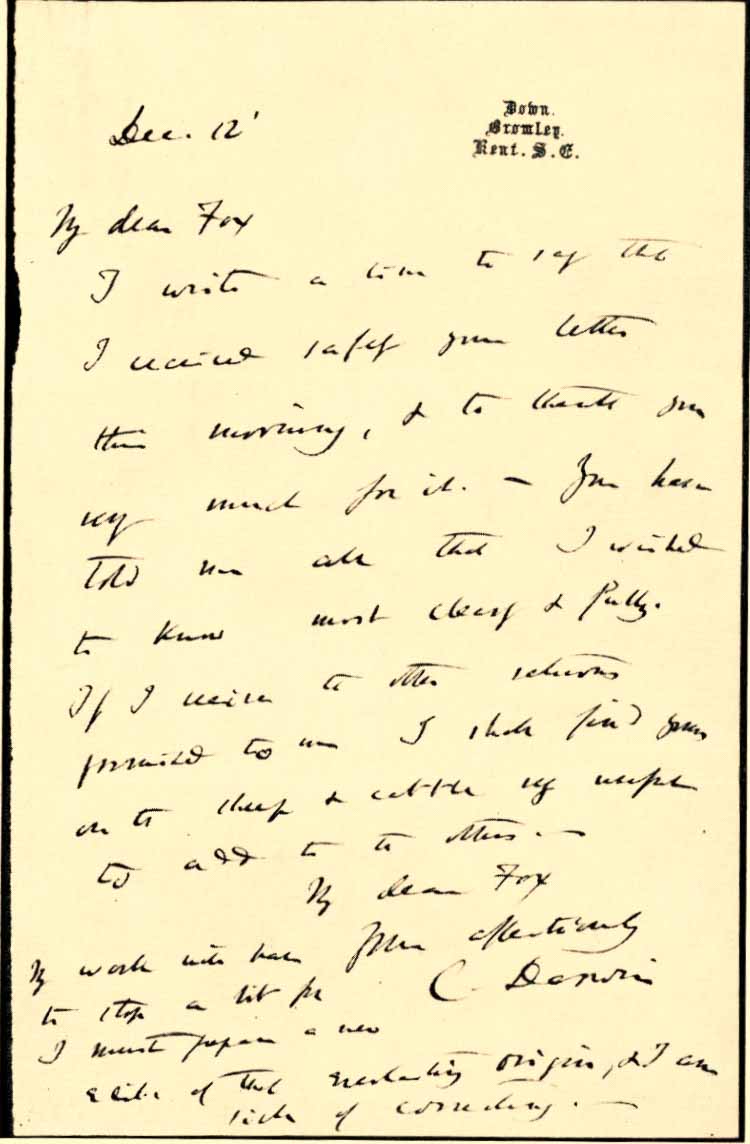 Down.
Bromley.
Kent. S.E.
Dec. 12'
My dear Fox
I write a line to say that
I received safely your letter
this morning, & to thank you
very much for it. — You have
told me all that I wished
to know most clearly & fully.
If I receive the other returns
promised to me I shall find yours
on the sheep & cattle very useful
to add to the others. —
My dear Fox
Yours affectionately
C. Darwin
My work will have
to stop a bit for
I must prepare a new
edit. of that everlasting origin, & I am
sick of correcting. —